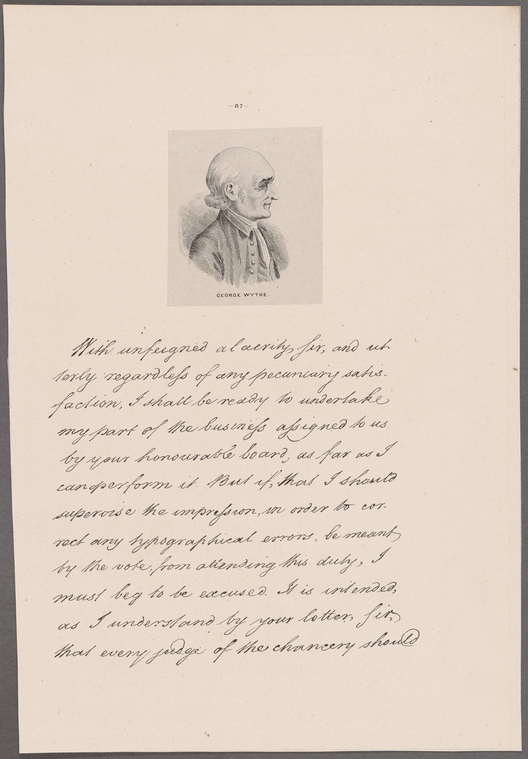 -87-
GEORGE WYTHE.
With unfeigned alacrity, sir, and ut
terly regardless of any pecuniary satis-
faction, I shall be ready to undertake
my part of the business assigned to us
by your honourable board, as far as I
can perform it. But if, that I should
supervise the impression, in order to cor-
rect any typographical errors, be meant
by the vote, from attending this duty, I
must beg to be excused. It is intended,
as I understand by your letter, sir,
that every judge of the chancery should